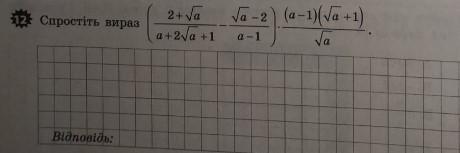 12 Спростіть вираз $\left(\frac{2+\sqrt{a}}{a+2\sqrt{a}+1}-\frac{\sqrt{a}-2}{a-1}\right)\cdot\frac{(a-1)(\sqrt{a}+1)}{\sqrt{a}}$.
Відповідь: